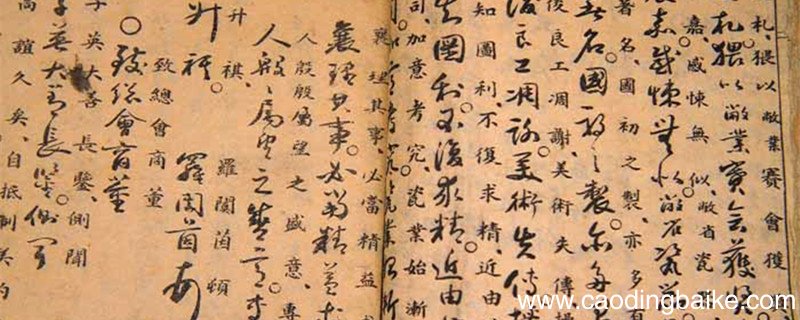 札、猥以敝業賽會獲
札。猥以敝業賽會獲
嘉、感悚無似、敝省瓷
嘉感悚無似敝省瓷
著名、國初之製、亦多有
著名。國初之製。亦多
後良工凋謝、美術失傳
後良工凋謝美術失傳
知圖利、不復求精、近由
知圖利不復求精。近由
司、加意考究、瓷業始漸
襄理其事、必當精益
襄理其事。必當精益
人殷殷屬望之盛意、專
人殷殷屬望之盛意專
升祺、羅閏茵頓
升祺羅閏茵
致總會商董
○致總會商董
英大善長鑒、側聞
英大善長鑒側聞
高誼久矣、自抵制美約
www.caodingbaike.com